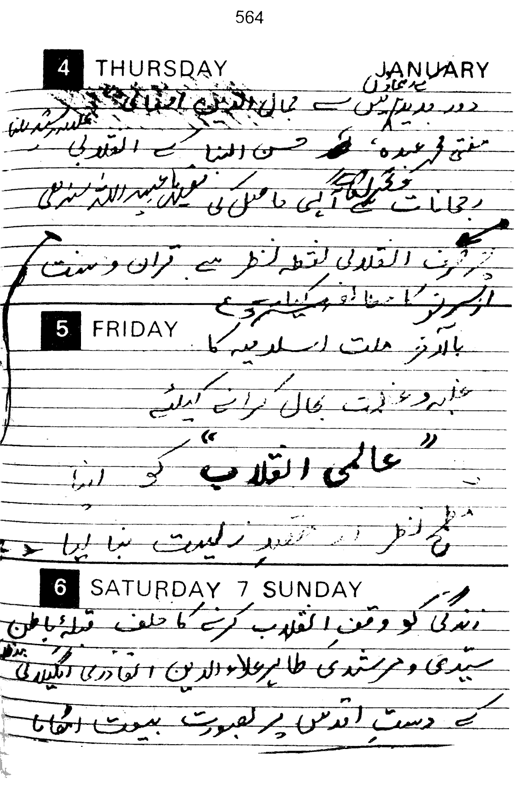 564
4 THURSDAY JANUARY
دور جدید میں سے جمال الدین افغانی
مفتی محمد عبدہ، حسن البنا کے انقلابی
رجحانات سے آگہی حاصل کی عبید اللہ سندھی
انقلابی نقطہ نظر سے قرآن و سنت
کا مطالعہ
5 FRIDAY
بالآخر ملت اسلامیہ کا
غلبہ و عظمت بحال کرانے کیلئے
"عالمی انقلاب" کو اپنا
مطمح نظر اور مقصدِ زیست بنا لیا
6 SATURDAY 7 SUNDAY
زندگی کو وقفِ انقلاب کرنے کا حلف قبلۂ باطن
سیدی و مرشدی طاہر علاؤ الدین القادری الگیلانی
کے دستِ اقدس پر بصورت بیعت اٹھایا